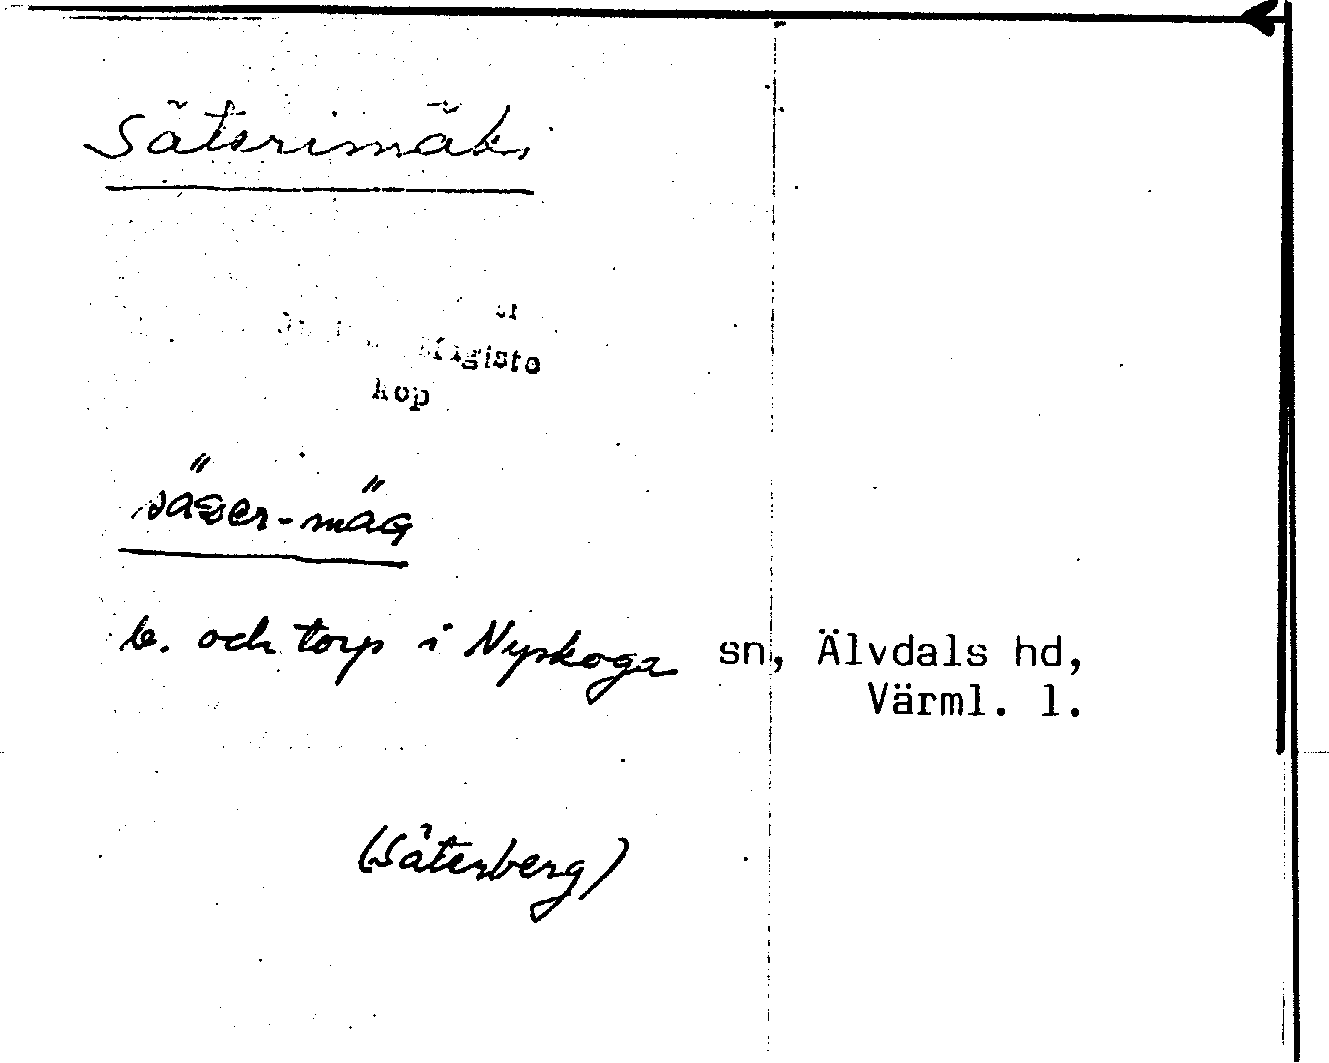 Säterimäki
kop
säʒer-mäG
b. och torp i Nyskoga sn, Älvdals hd,
Värml. l.
(Säterberg)